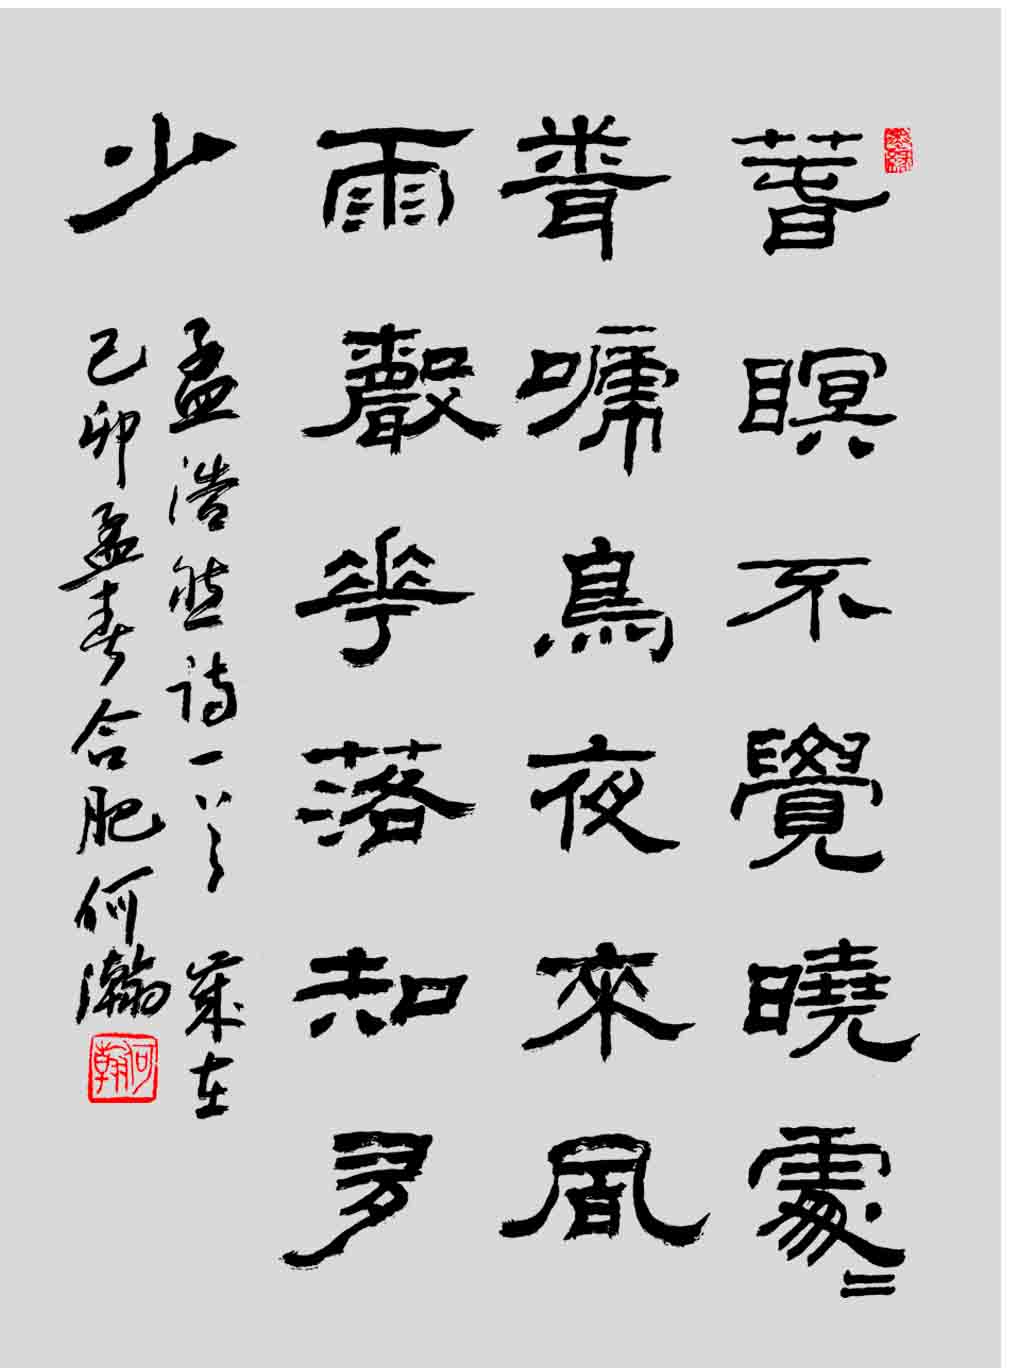 萅瞑不覺曉處二
聞啼鳥夜來風
雨聲花落知多
少
孟浩然詩一首 歲在
己卯孟春合肥何瀚